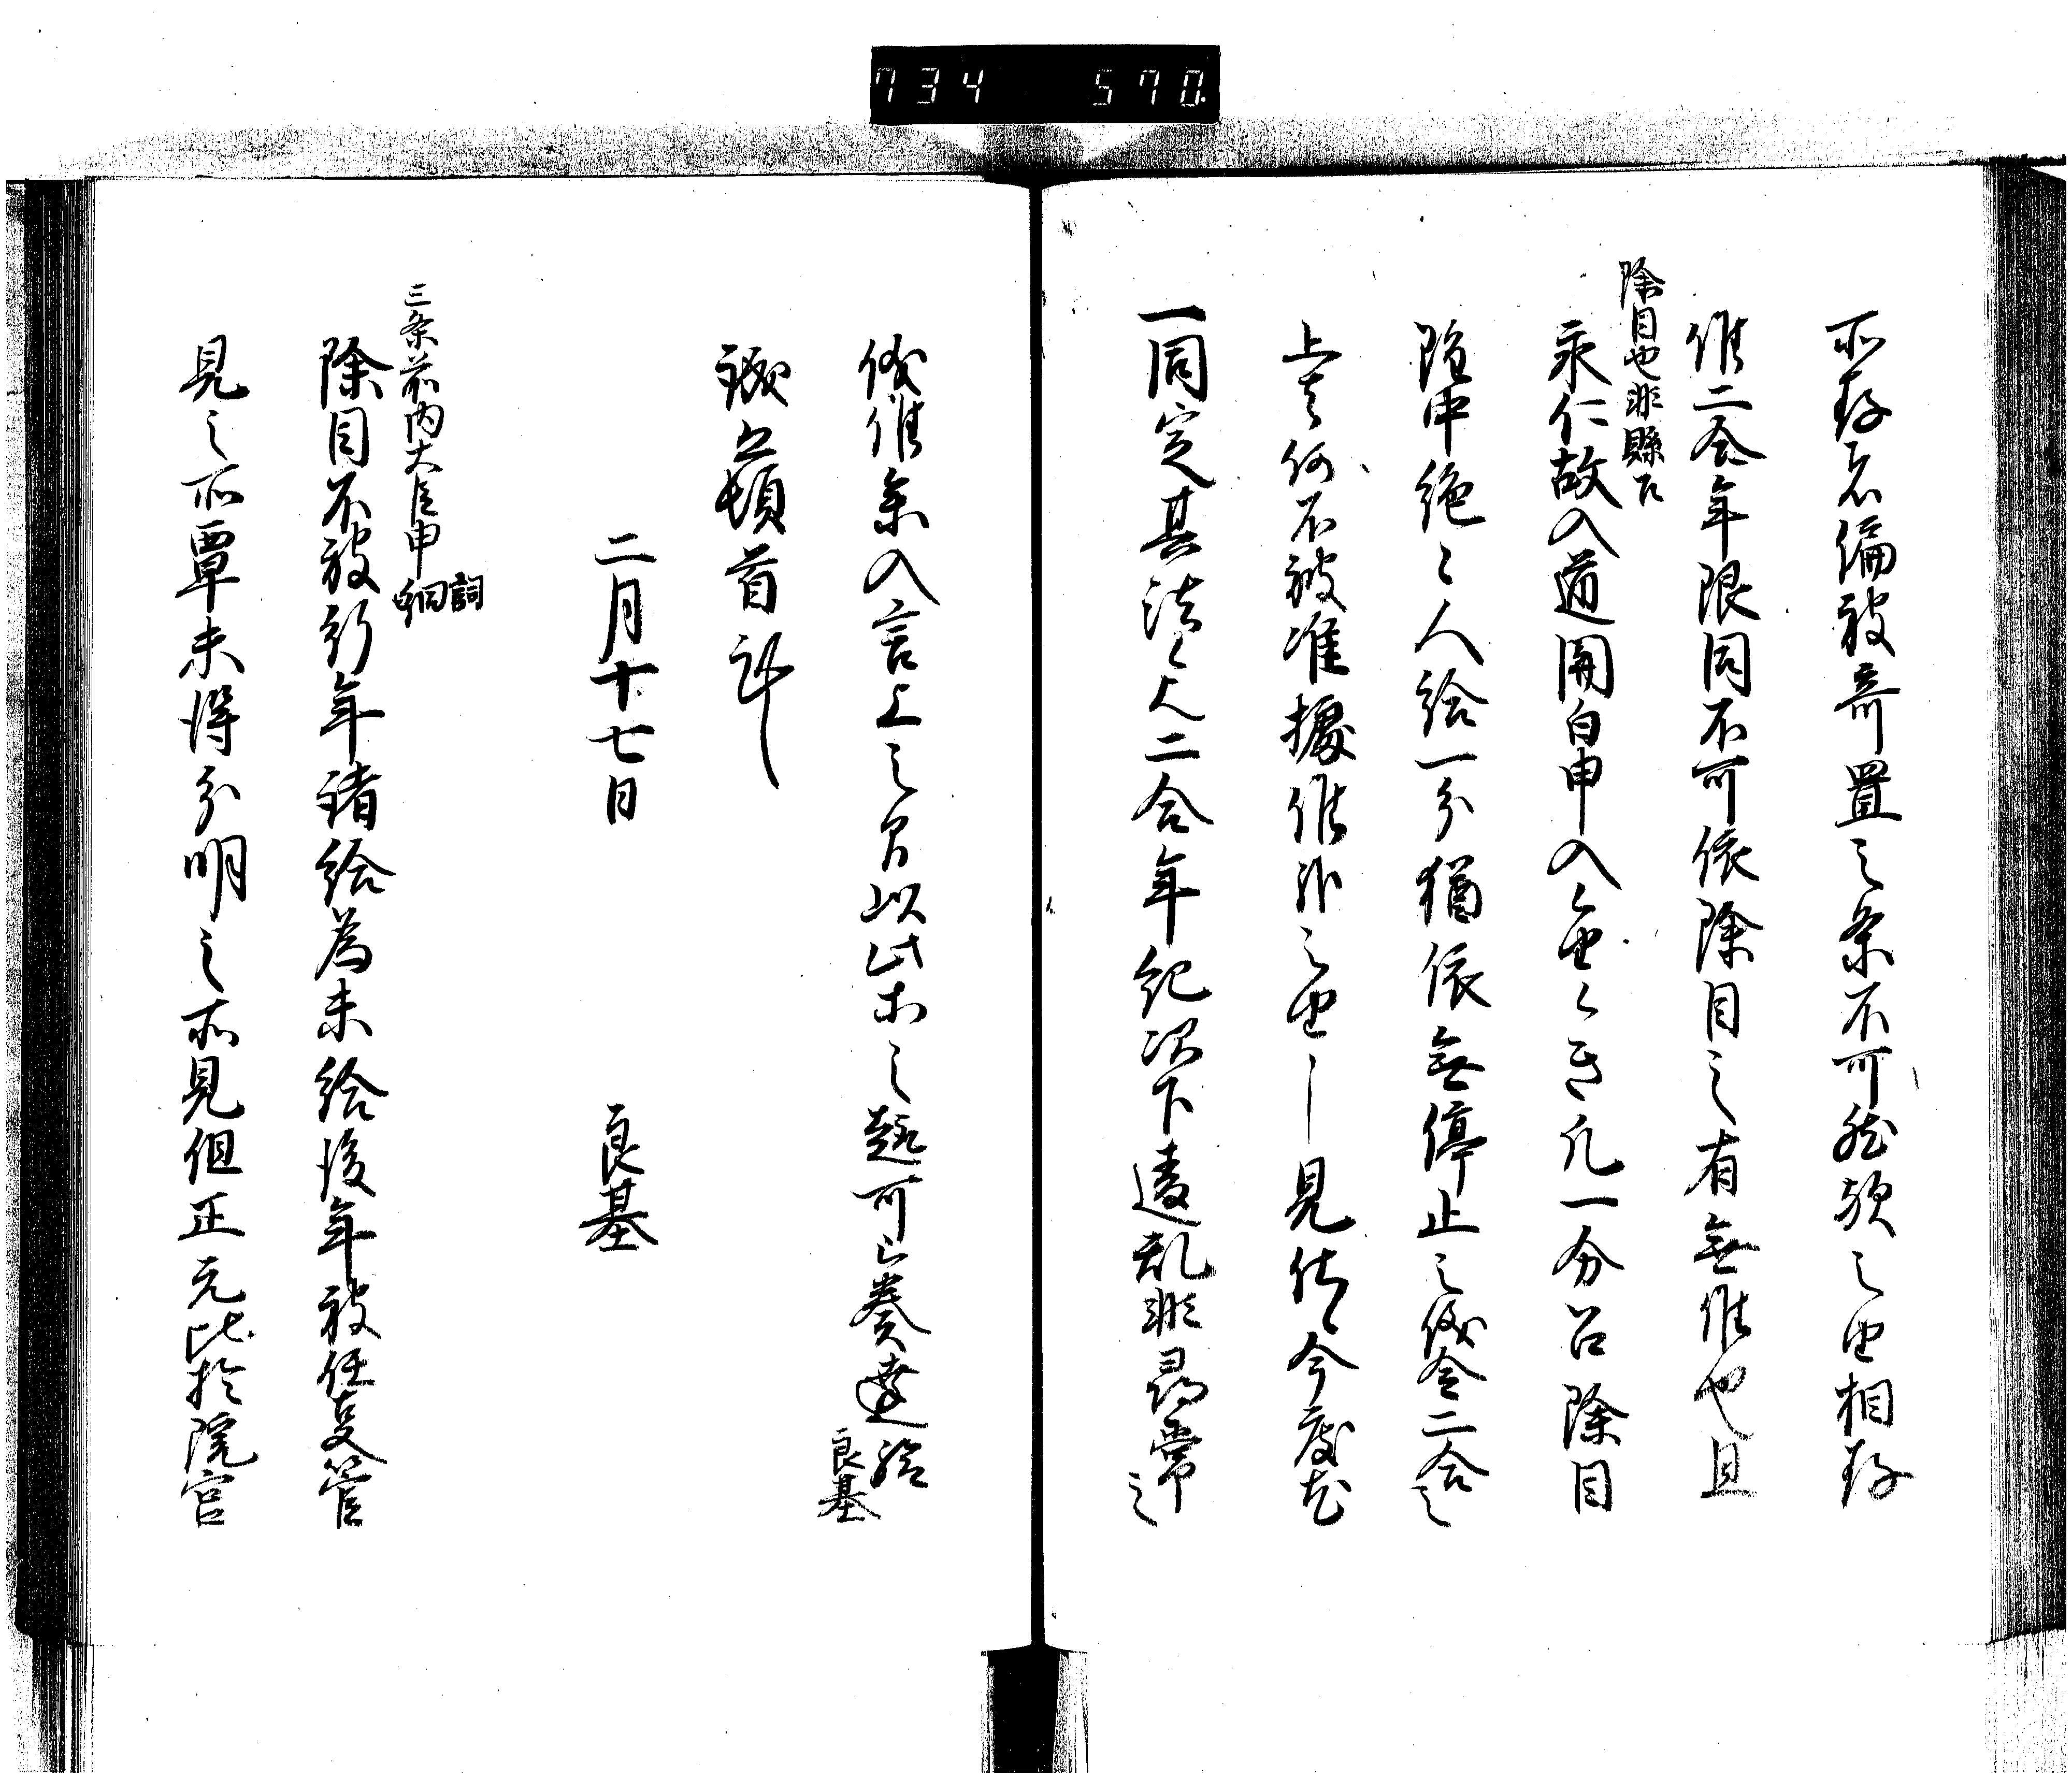 734 570
所存者偏被奇置之条不可然歟之由相存
候二合年限同不可依除目之有無候也且
除目也非縣召
永仁故入道関白申入之由凡一分召除目
隨中絶之人給一分猶依無停止之儀令二合之
上者何不被准據候哉之由見候今度尤
一同定其法二合年紀次下違乱非尋常之
儀候条入言上之旨以此等之趣可令奏達給
良基
誠恐頓首謹
二月十七日
良基
三条前内大臣申詞
除目不被行年諸給為未給後年被任隻管
見之所覃未得分明之所見但正元比於院宮